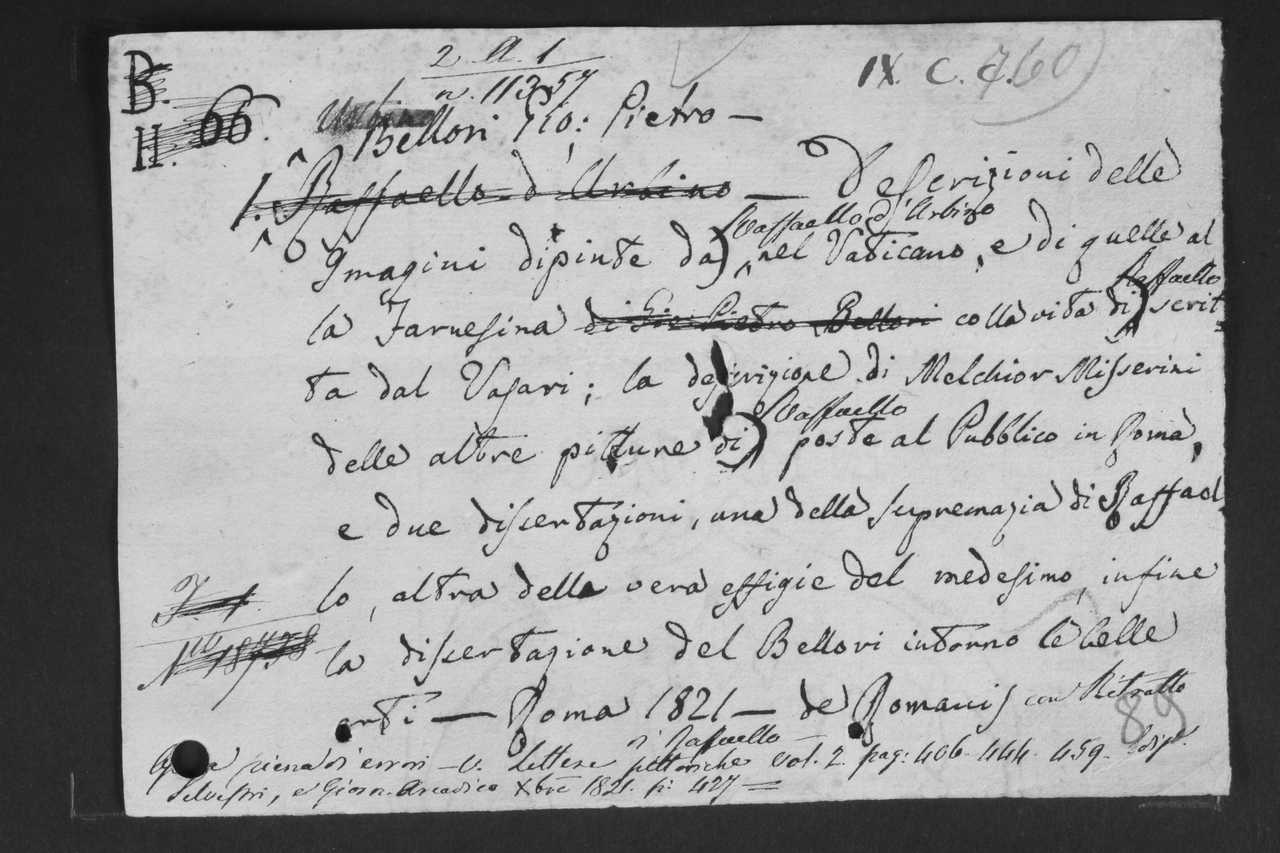 2. A. 1
n. 11357
IX. C. 7.60
B.
II. 66.
Urbino
Bellori Gio: Pietro —
1. Raffaello d'Urbino — Descrizioni delle
Raffaello d'Urbino
Imagini dipinte da nel Vaticano, e di quelle al
Raffaello
la Farnesina di Gio: Pietro Bellori colla vita di scrit=
ta dal Vasari; la descrizione di Melchior Misserini
Raffaello
delle altre pitture di poste al Pubblico in Roma,
e due dissertazioni, una della supremazia di Raffael=
lo, altra della vera effigie del medesimo, infine
la dissertazione del Bellori intorno le belle
arti — Roma 1821 — de Romanis con Ritratto
89
di Raffaello —
piena di errori — V. Lettere pittoriche Vol. 2. pag: 406. 444. 459.
Silvestri, e Giorn. Arcadico Xbre 1821. p: 427 =